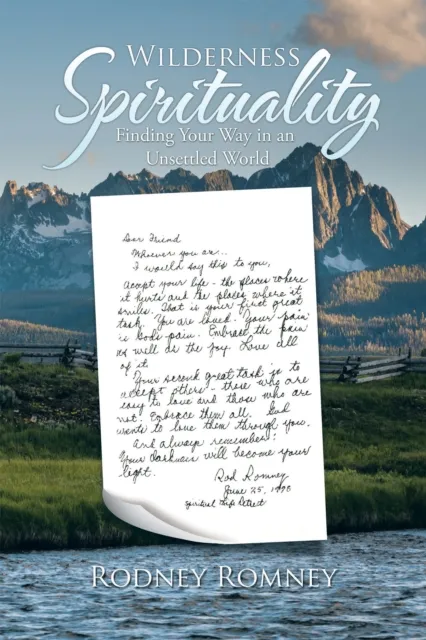 WILDERNESS
Spirituality
Finding Your Way in an
Unsettled World
Dear Friend
Whoever you are...
I would say this to you,
accept your life - the places where
it hurts and the places where it
smiles. That is your first great
task. You are loved. Your pain
is God's pain. Embrace the pain
as well as the joy. Love all
of it.
Your second great task is to
accept others - those who are
easy to love and those who are
not! Embrace them all. God
wants to love them through you.
And always remember:
Your darkness will become your
light.
Rod Romney
June 25, 1998
Spiritual Retreat
RODNEY ROMNEY